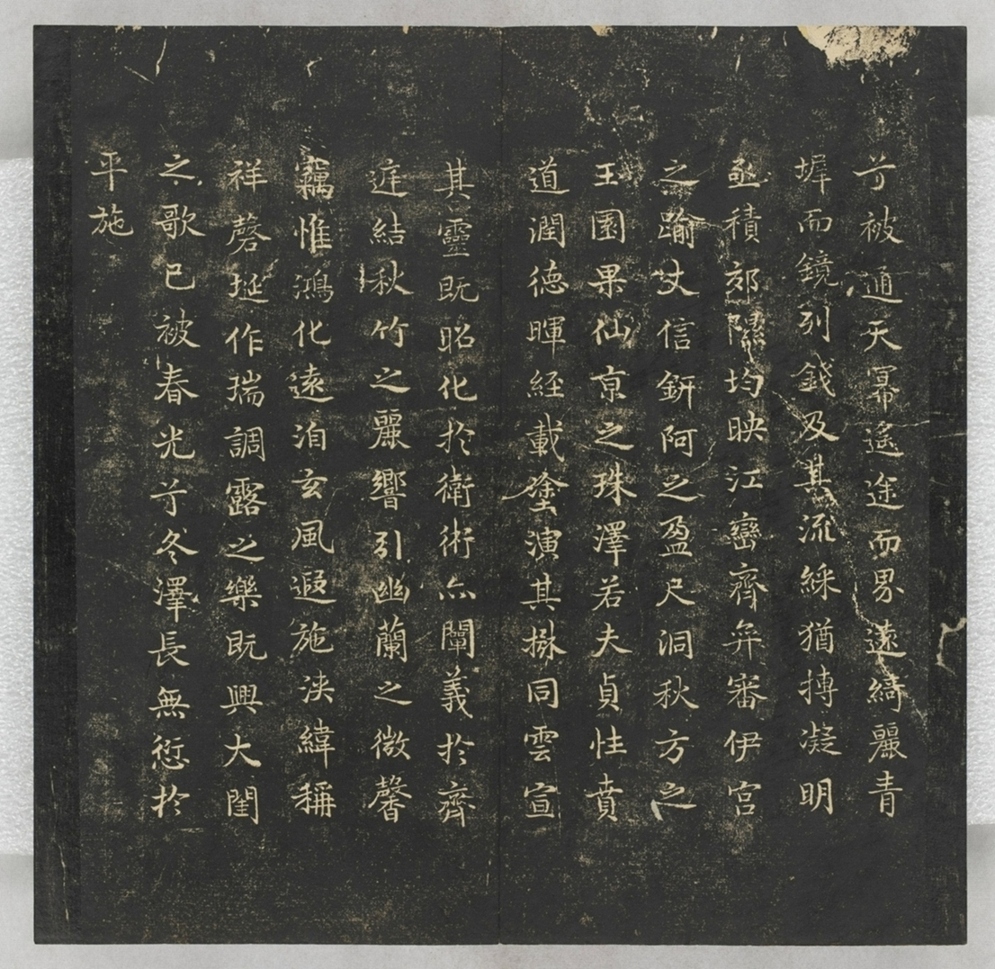 兮被通天幂遙途而界遠綺麗青
墀而鏡列錢及其流綵猶摶凝明
亟積郊隰均映江巒齊弁審伊宮
之踰丈信鈃阿之盈尺洞秋方之
王園果仙京之珠澤若夫貞性賁
道潤德暉経載塗演其掞同雲宣
其靈既昭化於衛術亦闡義於齊
迬結秋竹之麗響引幽蘭之微馨
竊惟鴻化遠洎玄風遐施泆緯稱
祥磬埏作瑞調露之樂既興大閨
之歌已被春光兮冬澤長無愆於
平施